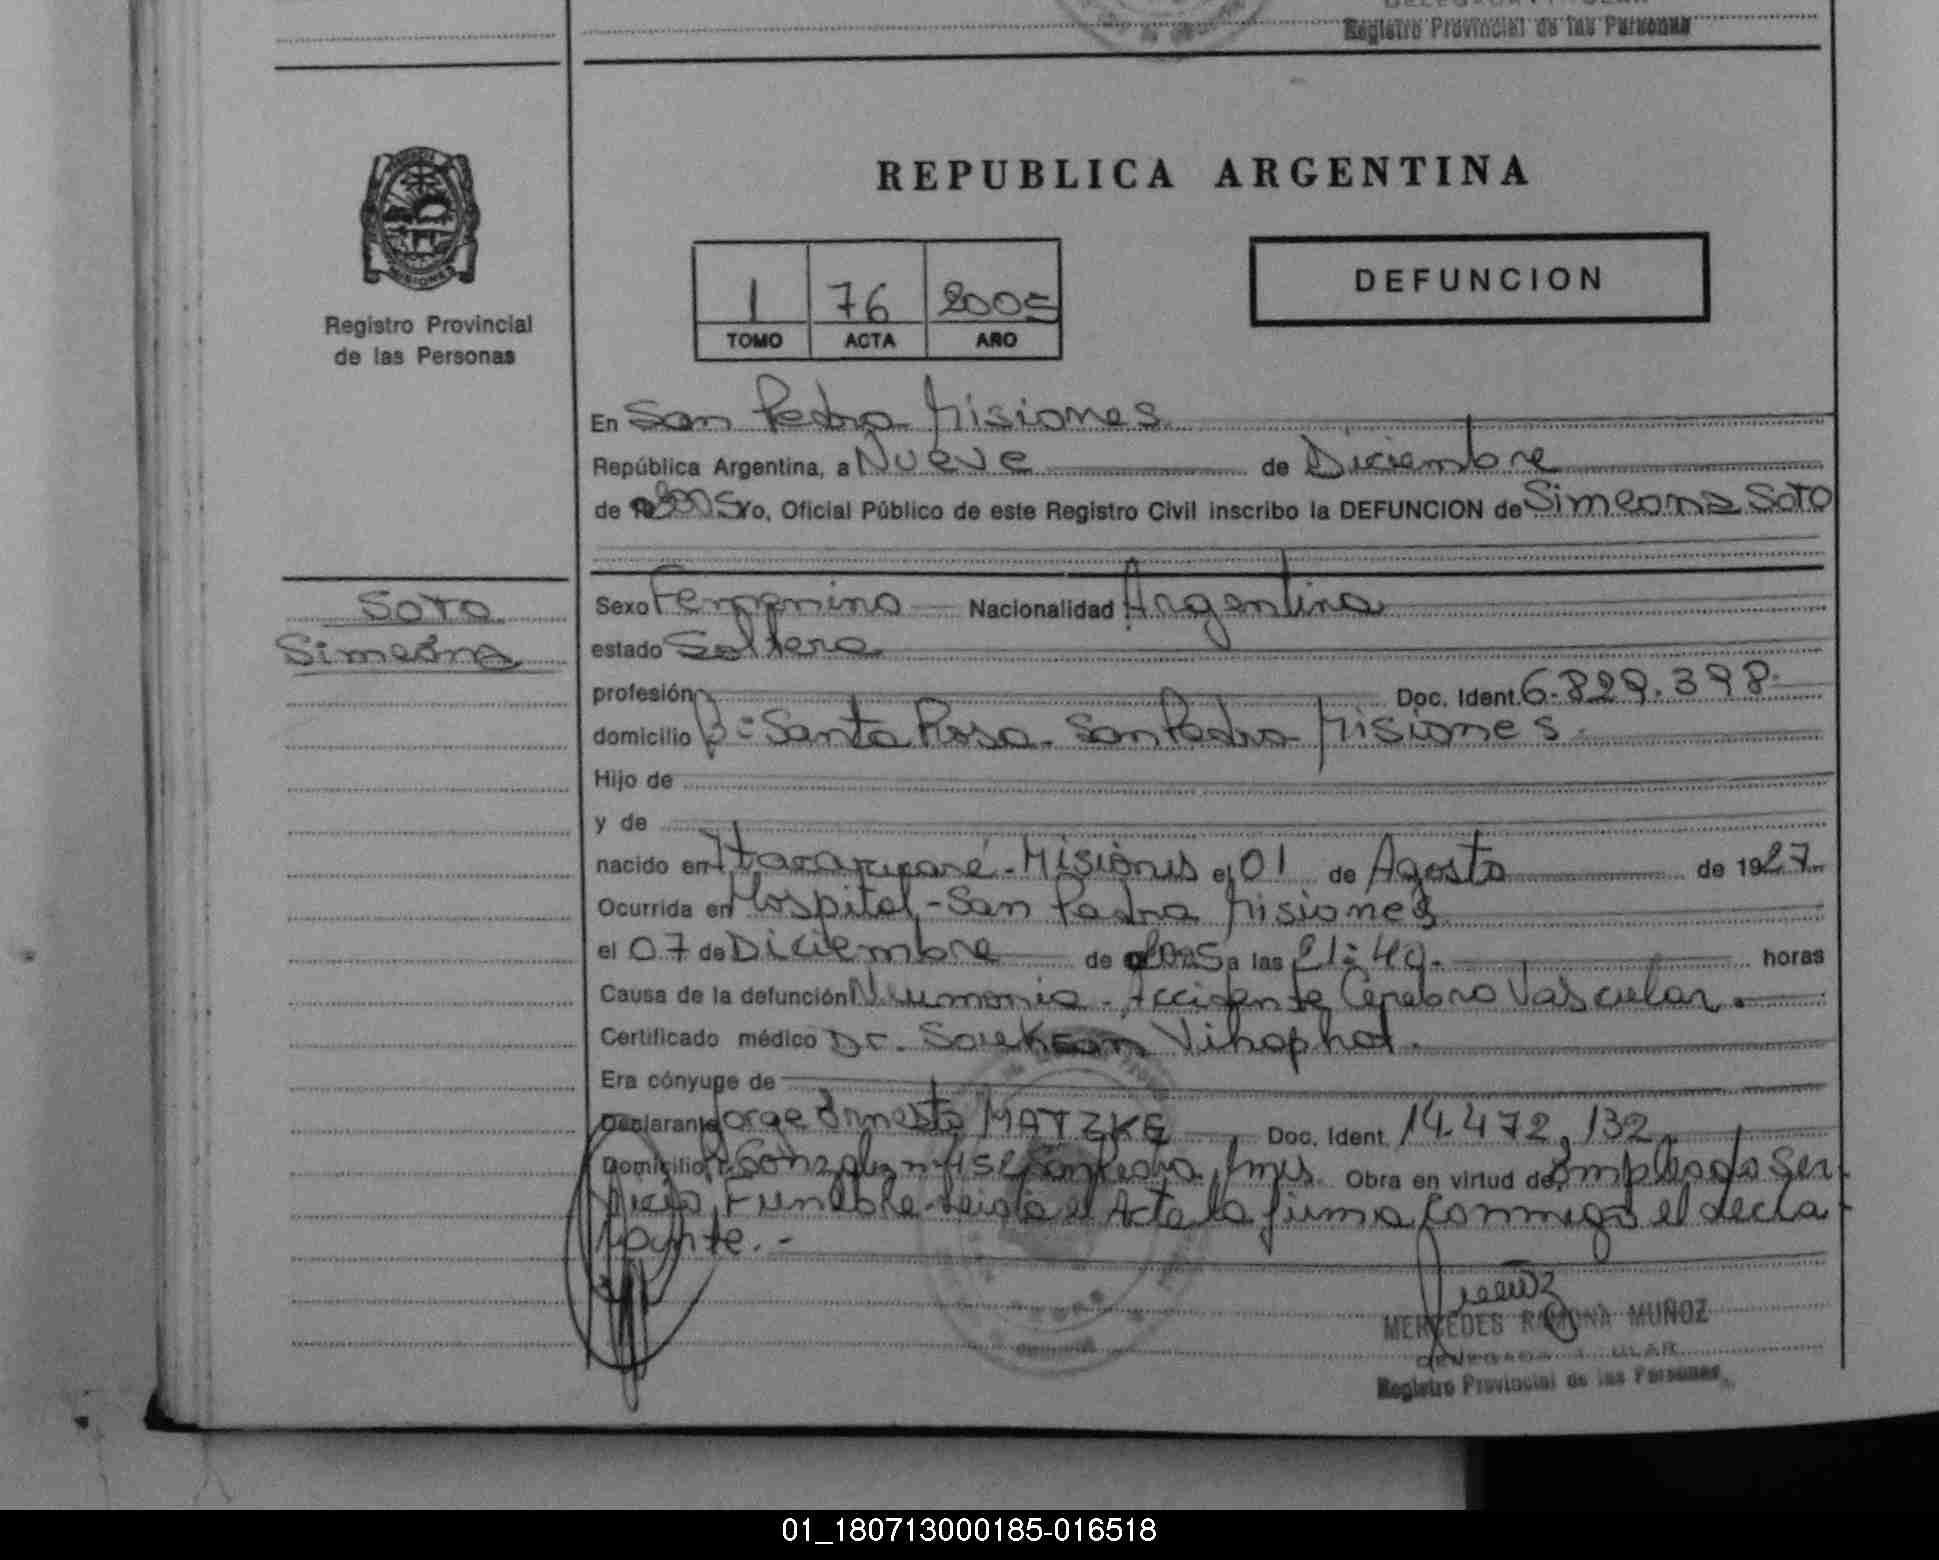 Registro Provincial de las Personas
MISIONES
Registro Provincial
de las Personas
REPUBLICA ARGENTINA
1 76 2005
TOMO ACTA AÑO
DEFUNCION
En San Pedro Misiones
República Argentina, a Nueve de Diciembre
de 2005 Yo, Oficial Público de este Registro Civil inscribo la DEFUNCION de Simeona Soto
Soto
Simeona
Sexo Femenino Nacionalidad Argentina
estado Soltera
profesión Doc. Ident. 6.829.398.
domicilio Bº Santa Rosa - San Pedro Misiones.
Hijo de
y de
nacido en - Misiones el 01 de Agosto de 1927
Ocurrida en Hospital - San Pedro Misiones
el 07 de Diciembre de 2005 a las 21:40 - horas
Causa de la defunción Neumonia - Accidente Cerebro Vascular.
Certificado médico Dr. Vihaphat.
Era cónyuge de
Declarante Jorge Ernesto MATZKE Doc. Ident. 14.472.132
Domicilio San Pedro, Mnes. Obra en virtud de Empleado Ser-
vicio Funebre - Leida el Acta la firma conmigo el decla-
rante.-
MERCEDES RAMONA MUÑOZ
DELEGADA TITULAR
Registro Provincial de las Personas
01_180713000185-016518